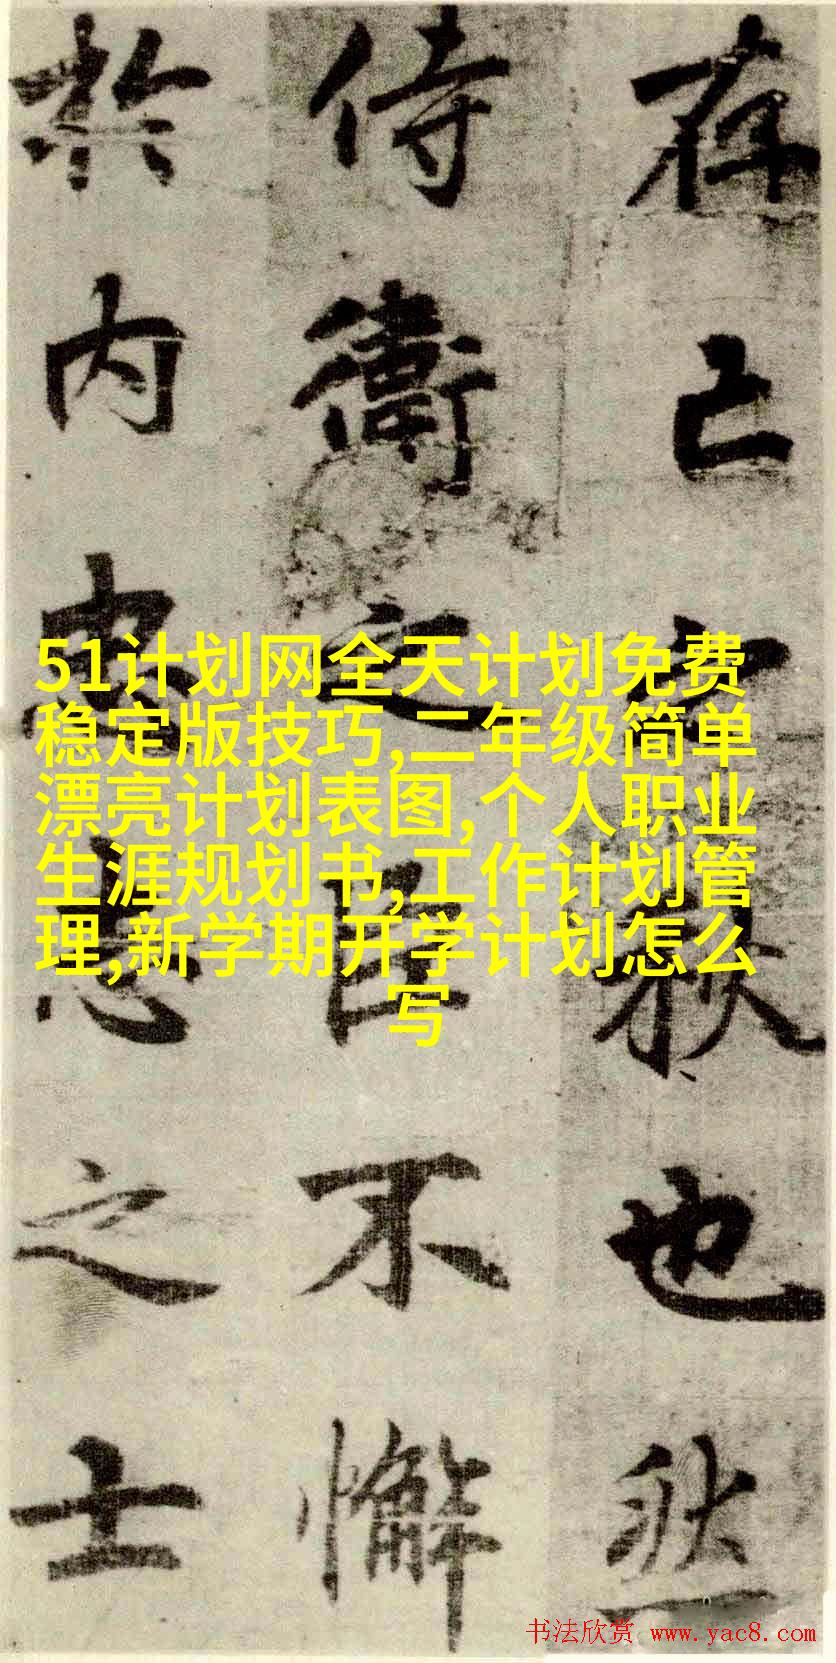 存亡之秋也然
侍衛之臣不懈
於内忠志之士
51计划网全天计划免费
稳定版技巧,二年级简单
漂亮计划表图,个人职业
生涯规划书,工作计划管
理,新学期开学计划怎么
写
书法欣赏 www.yac8.com